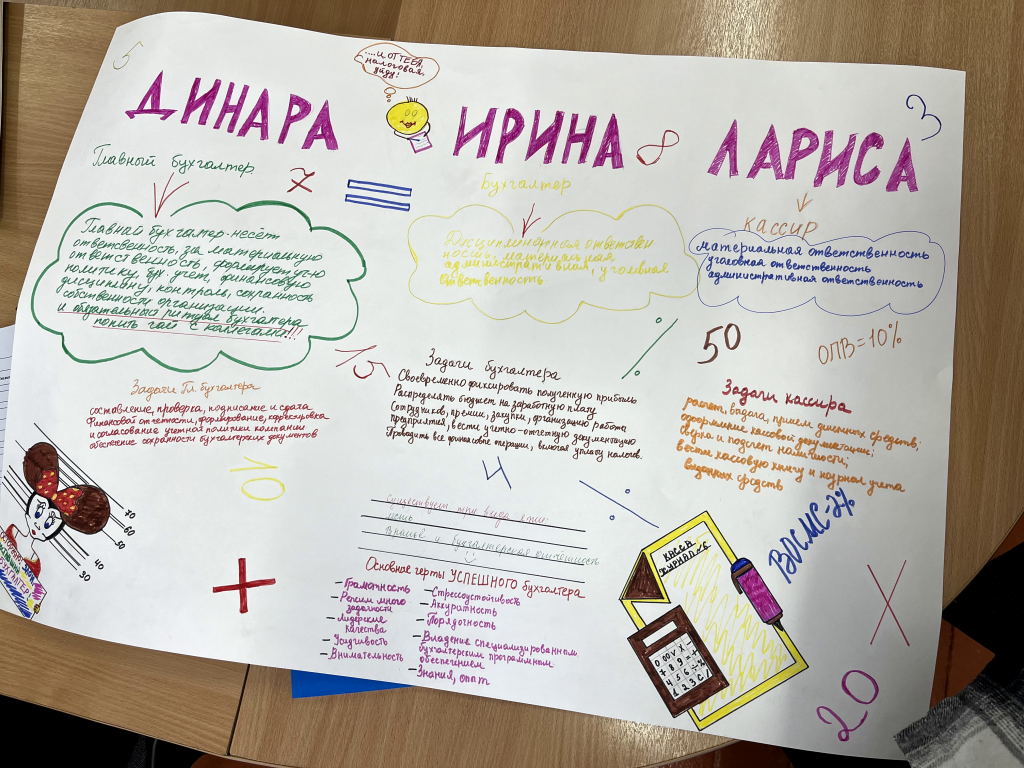 5
....И ОТ ТЕБЯ,
налоговая,
уйду!
ДИНАРА
Главный бухгалтер
7
Главный бухгалтер-несёт
ответственность, за материальную
ответственность, формирует уч.
политику, бух. учет, финансовую
дисциплину, контроль, сохранность
собственности организации.
и обязательный ритуал бухгалтера
попить чай с коллегами!!!
15
Задачи Гл. бухгалтера
составление, проверка, подписание и сдача
Финансовой отчетности, формирование, корректировка
и согласование учетной политики компании
обеспечение сохранности бухгалтерских документов
10
70
60
50
40
30
БУХГАЛТЕР
+
=
ИРИНА
8
Бухгалтер
Дисциплинарная ответствен
ность, материальная
административная, уголовная
ответственность
%
Задачи бухгалтера
Своевременно фиксировать полученную прибыль
Распределять бюджет на заработную плату
Сотрудников, премии, закупки, организацию работа
Предприятия, вести учетно-отчетную документацию
Проводить все финансовые операции, включая уплату налогов.
4
%
Существует три вида лжи:
ложь
Враньё и бухгалтерская отчётность
Основные черты УСПЕШНОГО бухгалтера
- Грамотность
- Режим много
задачности
- Лидерские
качества
- Усидчивость
- Внимательность
- Стрессоустойчивость
- Аккуратность
- Порядочность
- Владение специализированным
бухгалтерским программным
обеспечением
- Знания, опыт
3
ЛАРИСА
кассир
материальная ответственность
уголовная ответственность
административная ответственность
50
ОПВ=10%
Задачи кассира
расчет, выдача, прием денежных средств;
оформление кассовой документации;
сверка и подсчет наличности;
вести кассовую книгу и журнал учета
выданных средств
ВОСМС-2%
КАССА
ЖУРНАЛ №6
7 8 9
4 5 6
1 2 3 С /
X
20